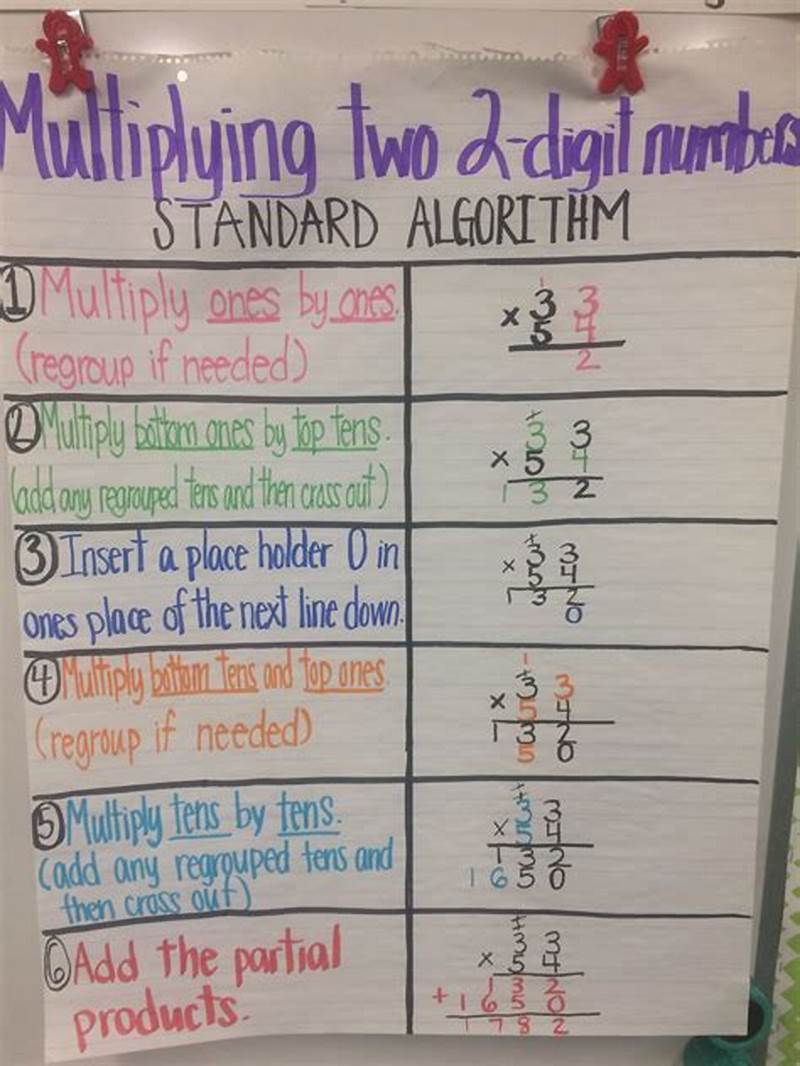 Multiplying two 2-digit numbers
STANDARD ALGORITHM
1 Multiply ones by ones.
(regroup if needed)
1
3 3
x 5 4
2
2 Multiply bottom ones by top tens.
(add any regrouped tens and then cross out)
1
3 3
x 5 4
1 3 2
3 Insert a place holder 0 in
ones place of the next line down.
1
3 3
x 5 4
1 3 2
0
4 Multiply bottom tens and top ones.
(regroup if needed)
1
1
3 3
x 5 4
1 3 2
5 0
5 Multiply tens by tens.
(add any regrouped tens and
then cross out)
1
1
3 3
x 5 4
1 3 2
1 6 5 0
6 Add the partial
products.
1
1
3 3
x 5 4
1 3 2
+ 1 6 5 0
1 7 8 2